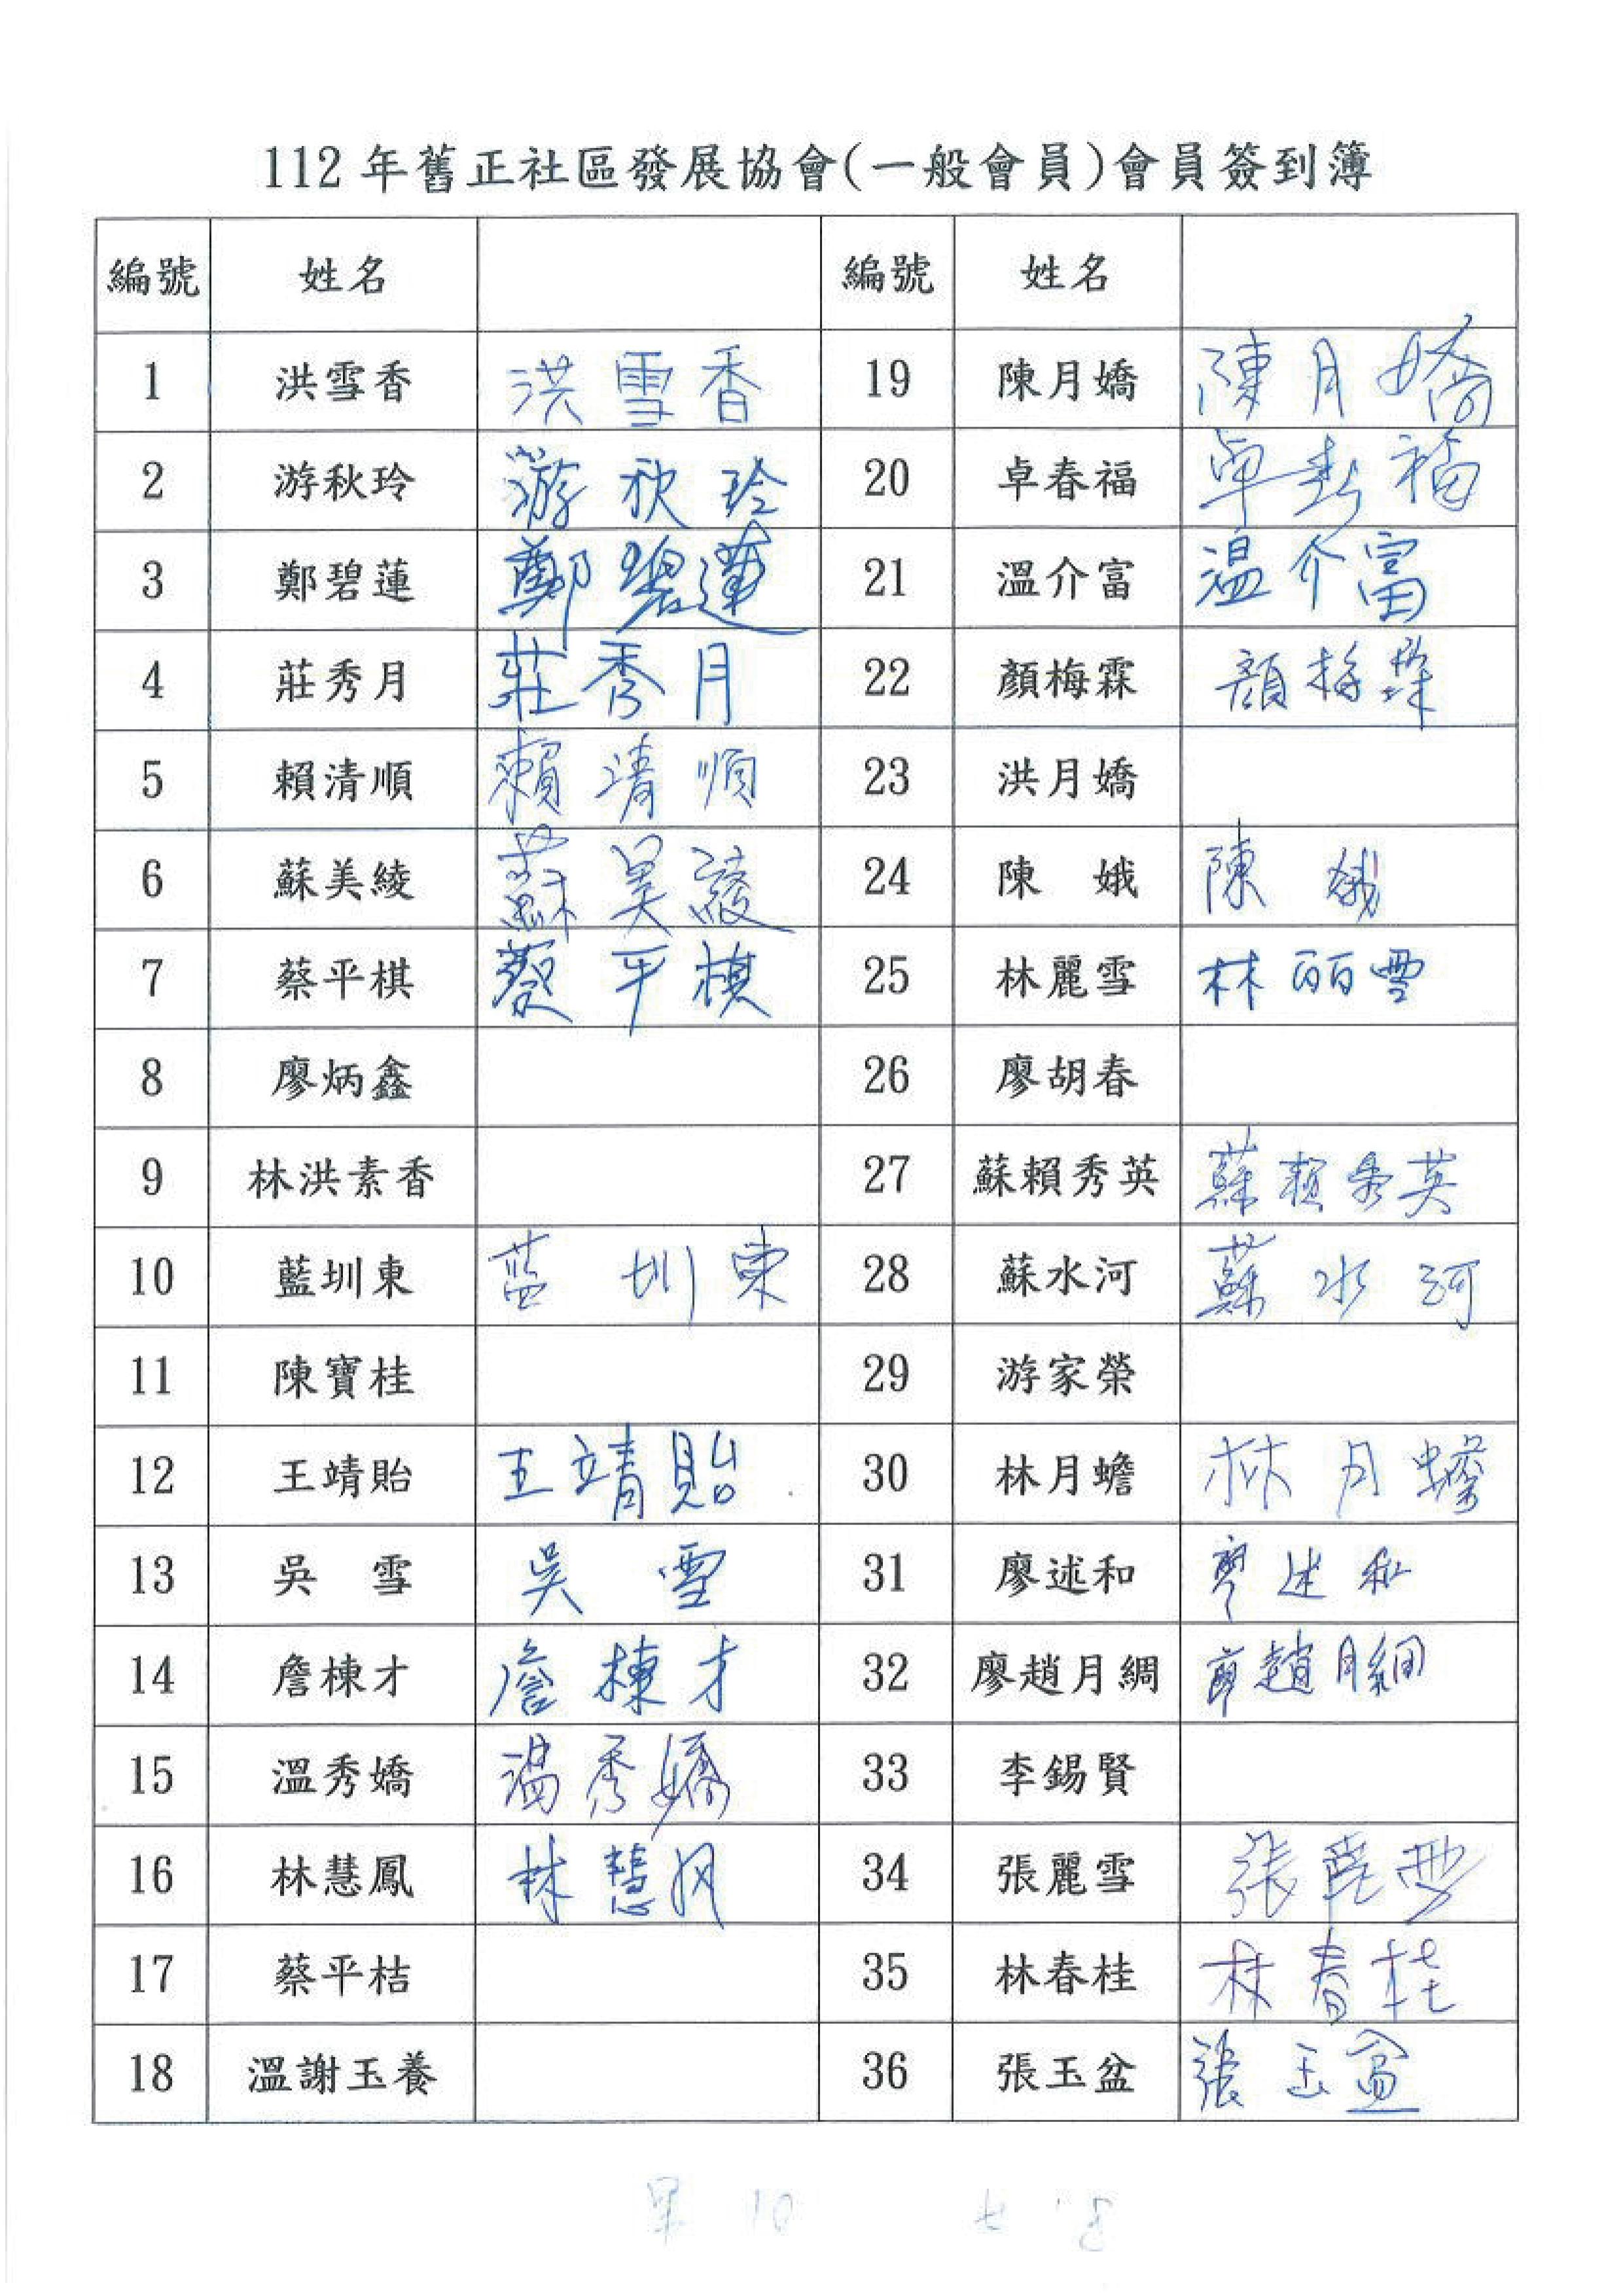 112年舊正社區發展協會(一般會員)會員簽到簿
編號 姓名 編號 姓名
1 洪雪香 洪雪香 19 陳月嬌 陳月嬌
2 游秋玲 游秋玲 20 卓春福 卓春福
3 鄭碧蓮 鄭碧蓮 21 溫介富 温介富
4 莊秀月 莊秀月 22 顏梅霖 顏梅霖
5 賴清順 賴清順 23 洪月嬌
6 蘇美綾 蘇美綾 24 陳 娥 陳 娥
7 蔡平棋 蔡平棋 25 林麗雪 林丽雪
8 廖炳鑫 26 廖胡春
9 林洪素香 27 蘇賴秀英 蘇賴秀英
10 藍圳東 蓝圳東 28 蘇水河 蘇水河
11 陳寶桂 29 游家榮
12 王靖貽 王靖貽 30 林月蟾 林月蟾
13 吳 雪 吳 雪 31 廖述和 廖述和
14 詹棟才 詹棟才 32 廖趙月綢 廖趙月綢
15 溫秀嬌 温秀嬌 33 李錫賢
16 林慧鳳 林慧凤 34 張麗雪 張麗雪
17 蔡平桔 35 林春桂 林春桂
18 溫謝玉養 36 張玉盆 張玉盆